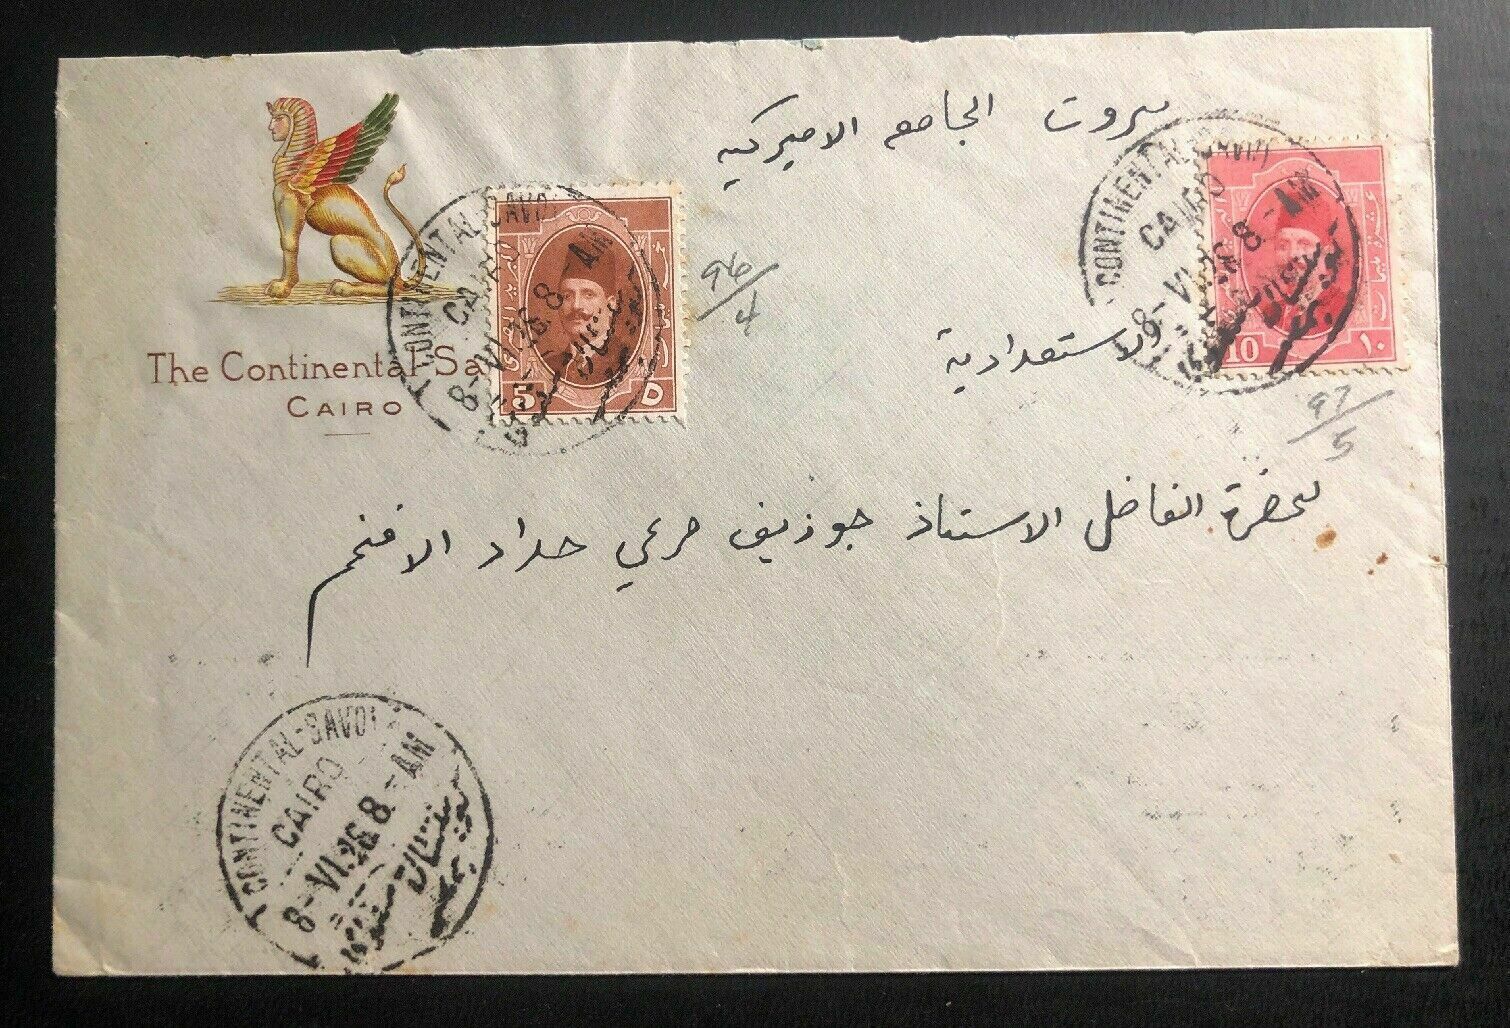 بيروت الجامعه الاميركيه
الاستعدادية
لحضرة الفاضل الاستاذ جوزيف مرعي حداد الافخم
The Continental-Sav
CAIRO
CONTINENTAL-SAVO
CAIRO
8-VI.26 8.-AM
5
٥
96/4
CONTINENTAL-SAVOY
CAIRO
8-VI.26 8.-AM
10
١٠
97/5
CONTINENTAL-SAVOY
CAIRO
8-VI.26 8.-AM